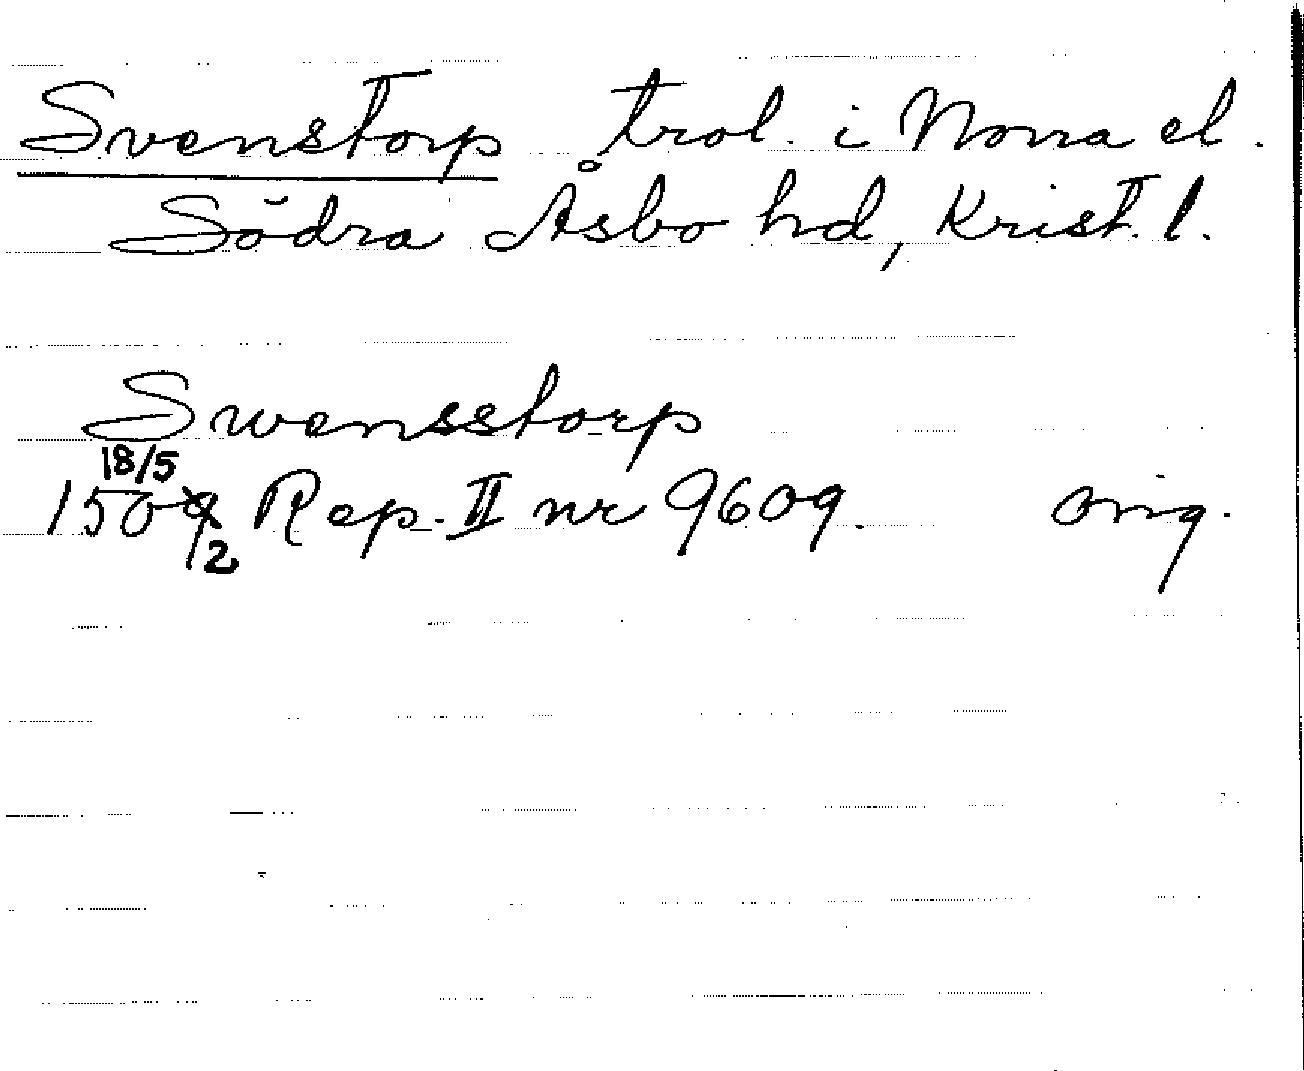 Svenstorp trol. i Norra el.
Södra Åsbo hd, Krist. l.
Swensstorp
18/5
1502 Rep. II nr 9609. orig.